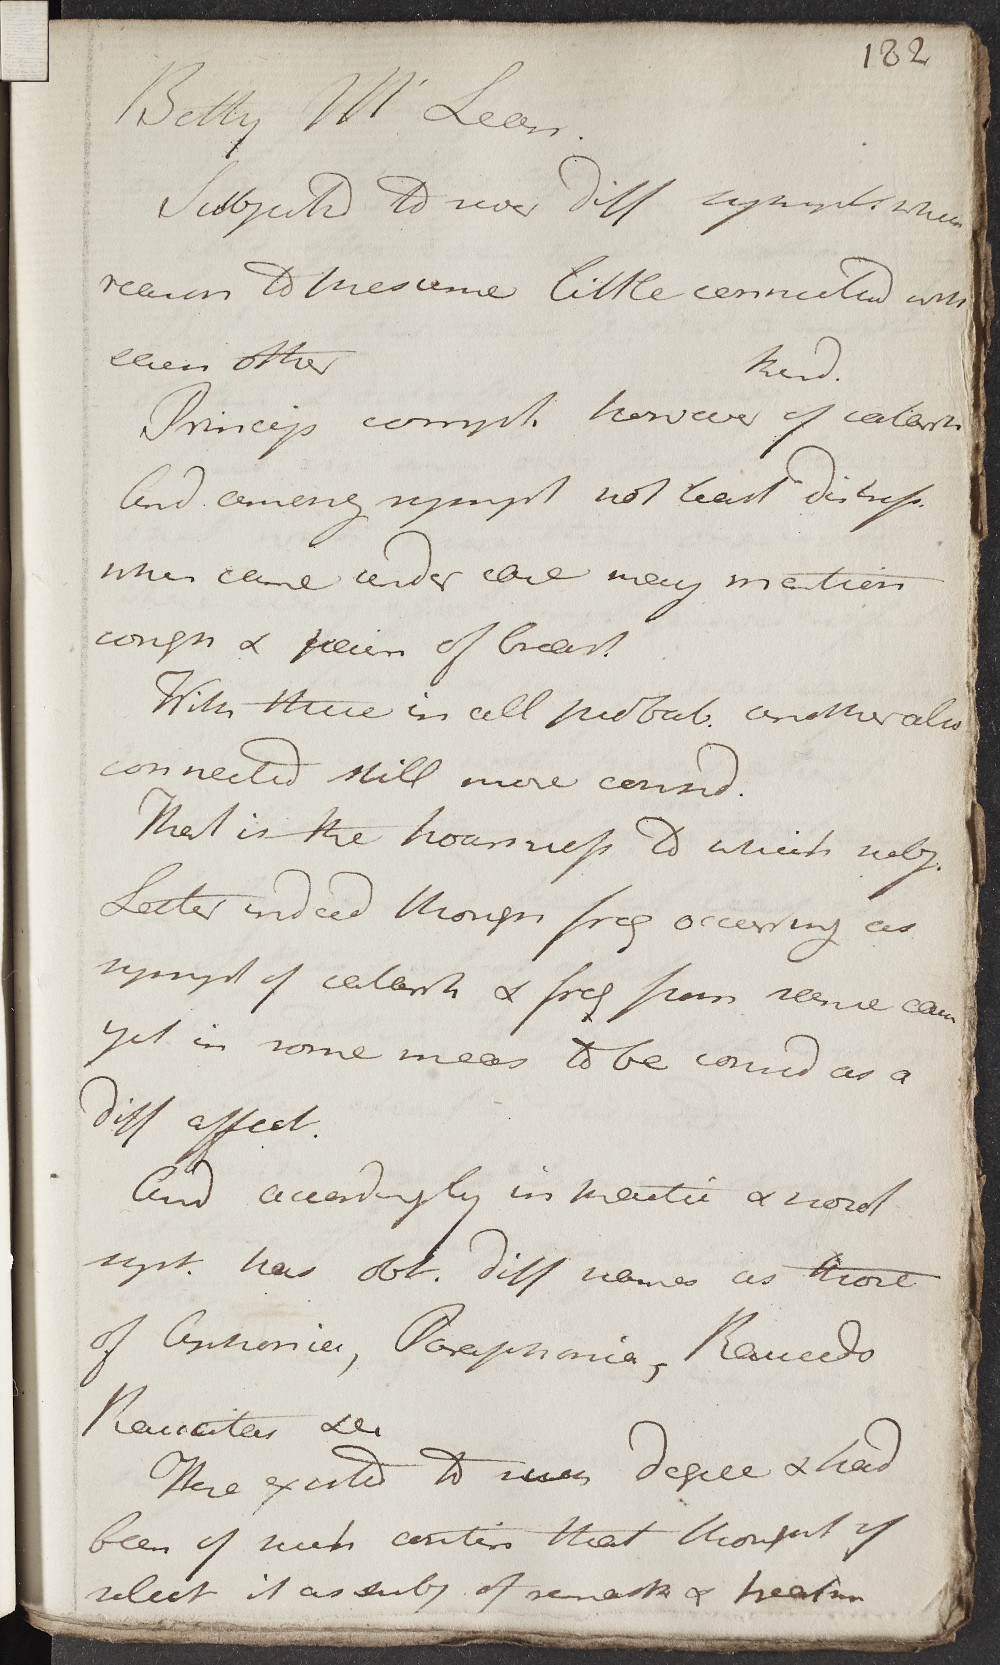 182
Betty McLean.
Subjected to sever diff sympt. when
reason to presume little connected with
each other
kind.
Princip compl. however of catarrh
And among sympt not least distress.
when came under care may mention
cough & pain of breast
With these in all probab. another also
connected still more consid.
That is the hoarseness to which subj.
Latter indeed though freq occurring as
sympt of catarrh & freq from same cau
yet in some meas to be consid as a
diff affect.
And accordingly in practic & nosol
syst. has obt. diff names as those
of Aphonia, Paraphonia, Raucedo
Raucitas &c
Here existed to such degree & had
been of such contin that thought of
select it as subj of remark & treatm